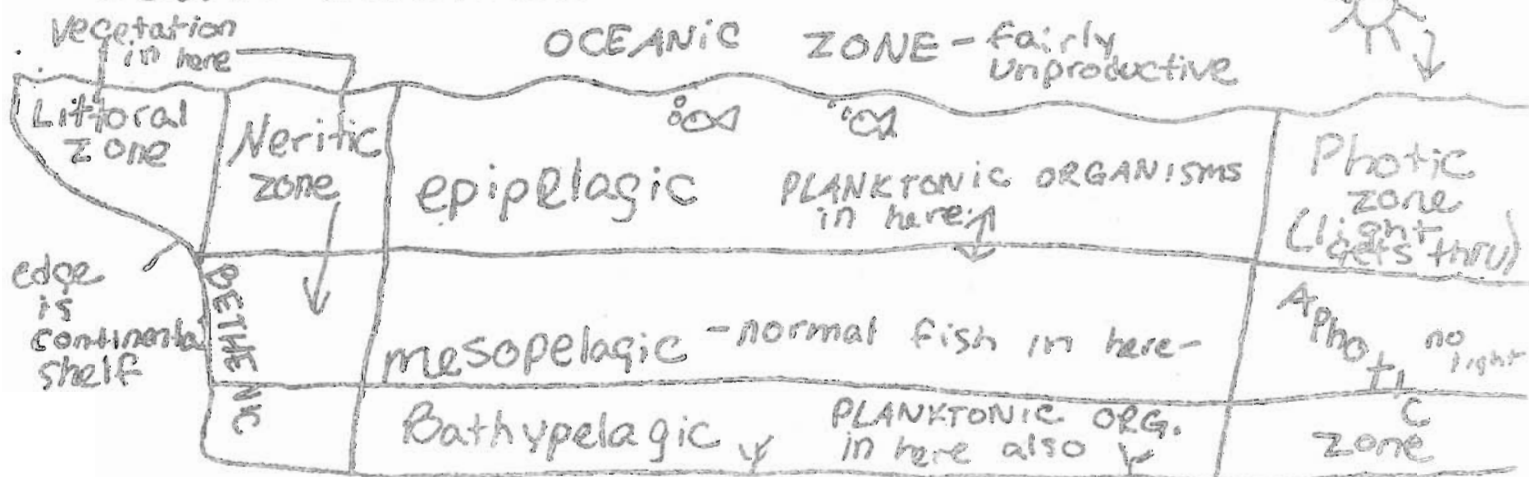 Vegetation
in here
OCEANIC ZONE - fairly
Unproductive
Littoral
zone
Neritic
zone
epipelagic
PLANKTONIC ORGANISMS
in here
Photic
zone
(light
gets thru)
edge
is
continental
shelf
BETHENIC
mesopelagic - normal fish in here -
Aphotic
no
light
zone
Bathypelagic
PLANKTONIC ORG.
in here also